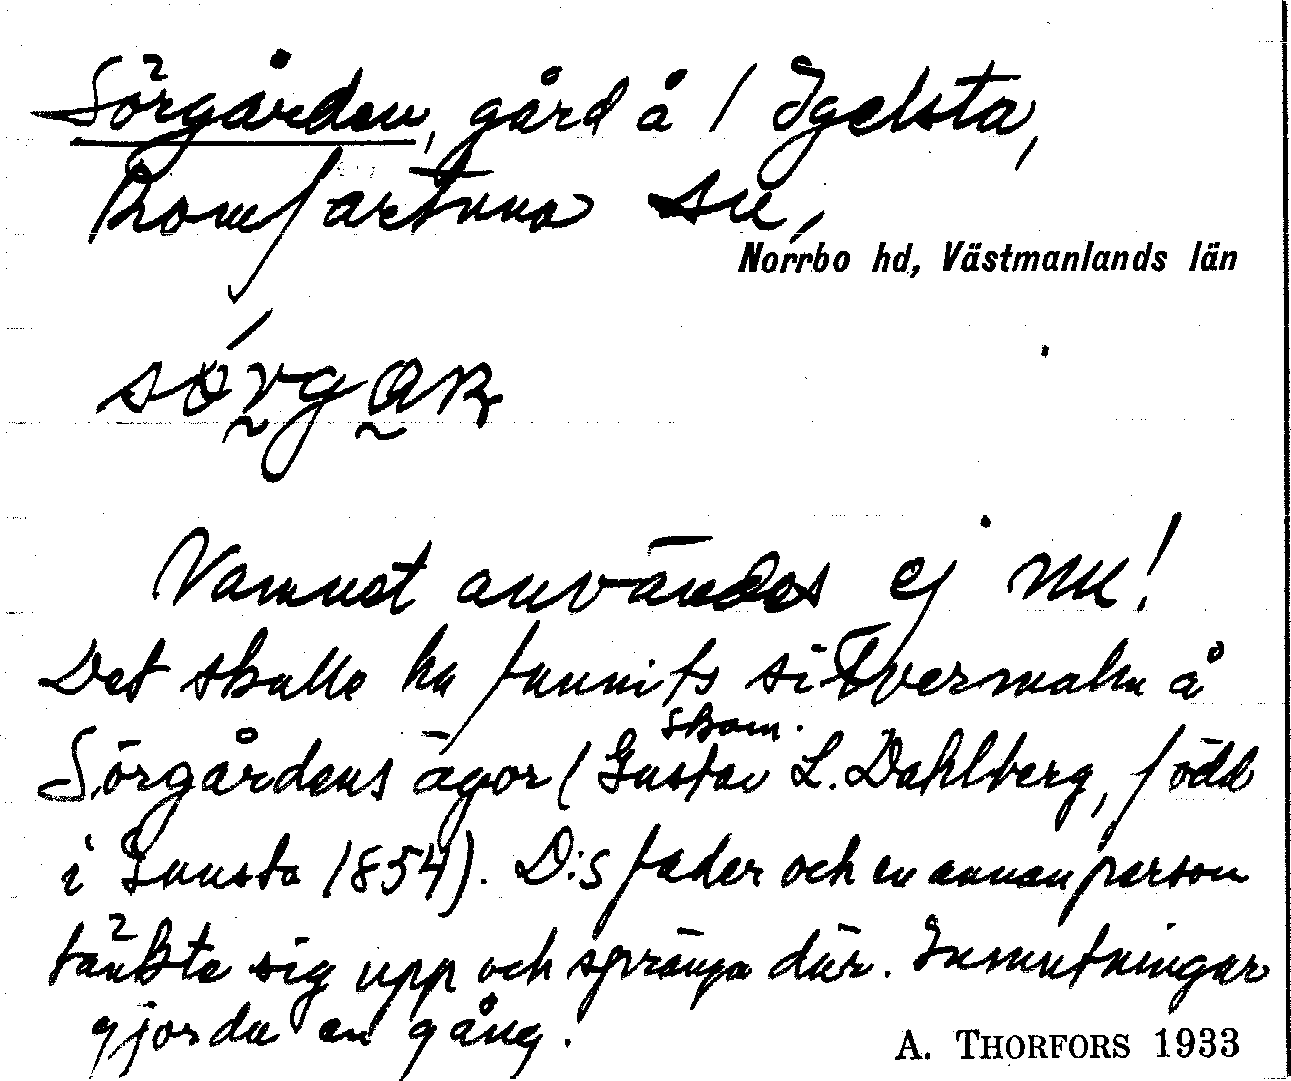 Sörgården, gård å 1 Igelsta,
Romfartuna sn,
Norrbo hd, Västmanlands län
Namnet användes ej nu!
Det skulle ha funnits silvermalm å
Sörgårdens ägor (Gustav L. Dahlberg, född
skom.
i Gunsta 1854). D:s fader och en annan person
tänkte sig upp och spränga där. Inmutningar
gjorde en gång.
A. THORFORS 1933